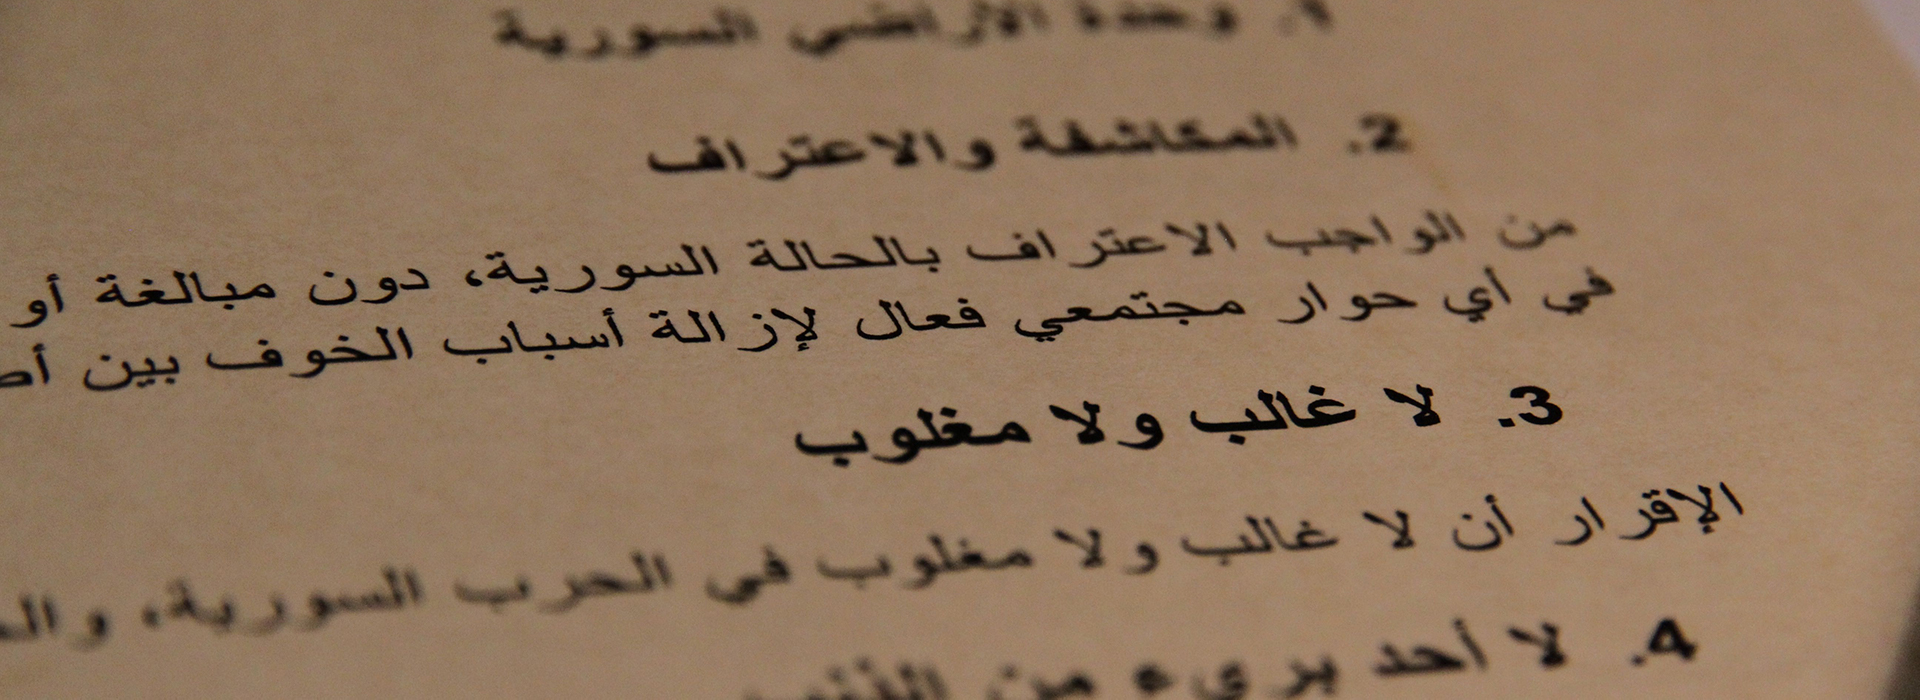 1. وحدة الأراضي السورية
2. المكاشفة والاعتراف
من الواجب الاعتراف بالحالة السورية، دون مبالغة أو
في أي حوار مجتمعي فعال لإزالة أسباب الخوف بين
3. لا غالب ولا مغلوب
الإقرار أن لا غالب ولا مغلوب في الحرب السورية،
4. لا أحد بريء من الذنب